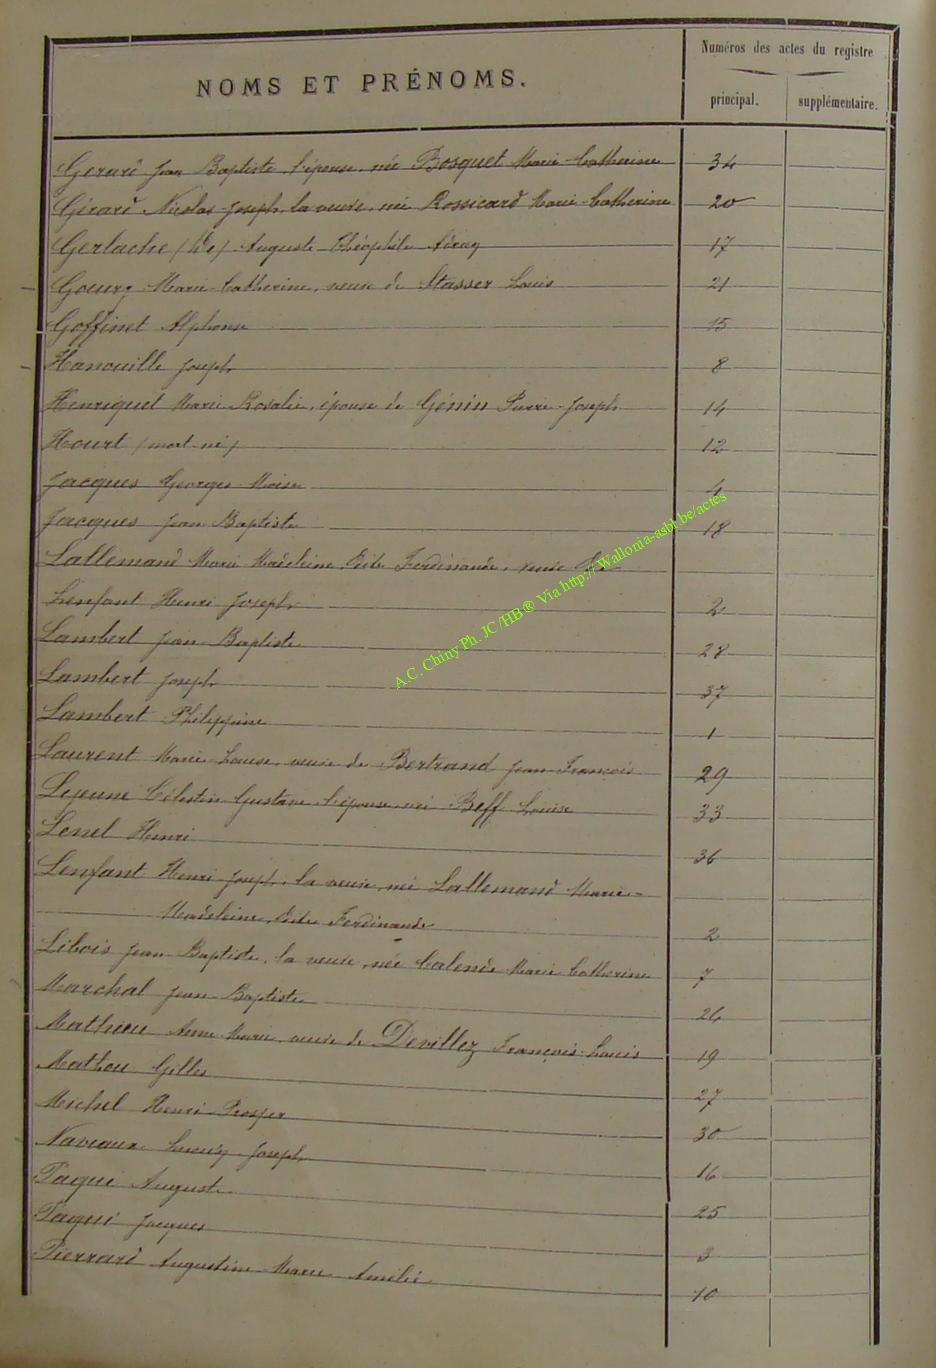 NOMS ET PRÉNOMS.
Numéros des actes du registre
principal.
supplémentaire.
Gerard Jean Baptiste, l'épouse, née Bosquet Marie-Catherine 34
Gérard Nicolas-Joseph, la veuve, née Rossicard Marie-Catherine 20
Gerlache (de) Auguste Théophile 17
Goeury Marie-Catherine, veuve de Stasser Louis 21
Goffinet Alphonse 15
Hanouille Joseph 8
Henriquet Marie-Rosalie, épouse de Génin Pierre-Joseph 14
Hourt (mort-né) 12
Jacques Georges Moïse 4
Jacques Jean-Baptiste 18
Lallemand Marie Madeleine Ferdinande, veuve de
Lenfant Henri Joseph 2
Lambert Jean-Baptiste 28
Lambert Joseph 37
Lambert Philippine 1
Laurent Marie-Louise, veuve de Bertrand Jean-François 29
Lejeune Célestin Gustave, l'épouse, née Beff Louise 33
Lenel Henri 36
Lenfant Henri Joseph, la veuve, née Lallemand Marie-
Madeleine, Ferdinande 2
Libois Jean-Baptiste, la veuve, née Marie Catherine 7
Marchal Jean-Baptiste
Mathieu Anne-Marie, veuve de Devillez François-Louis 19
Mathou Gilles 27
Michel Henri-Prosper 30
Naveaux Joseph 16
Paqui Auguste 25
Paqui Jacques 3
Pierrard Augustine Marie Amélie 10
A.C. Chiny Ph. JC/HB® Via http://Wallonia-asbl.be/actes